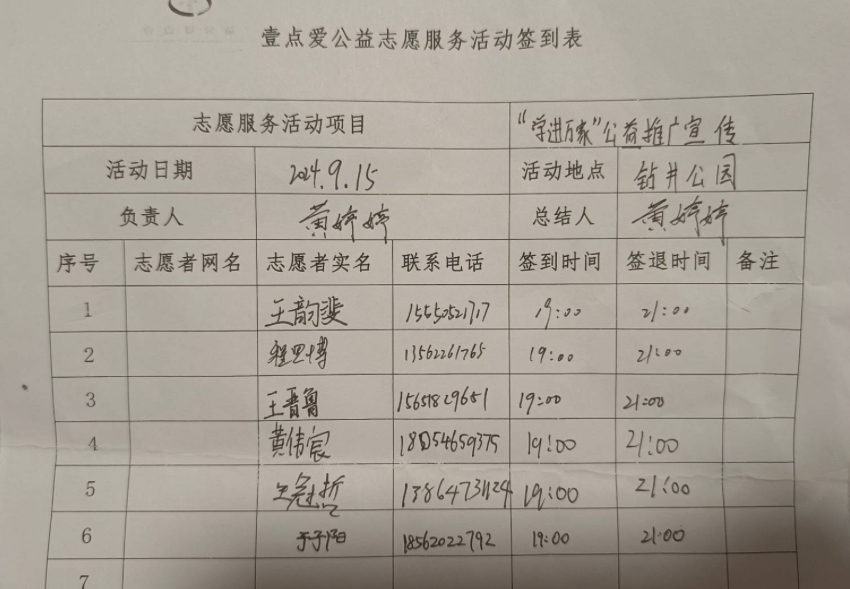 壹点爱公益志愿服务活动签到表
志愿服务活动项目 “学进万家”公益推广宣传
活动日期 2024.9.15 活动地点 钻井公园
负责人 黄婷婷 总结人 黄婷婷
序号 志愿者网名 志愿者实名 联系电话 签到时间 签退时间 备注
1 王韵斐 15550521717 19:00 21:00
2 程思博 13562261765 19:00 21:00
3 王晋鲁 15651829651 19:00 21:00
4 黄倩宸 18054659375 19:00 21:00
5 王冠哲 13864731124 19:00 21:00
6 于子阳 18562022792 19:00 21:00
7